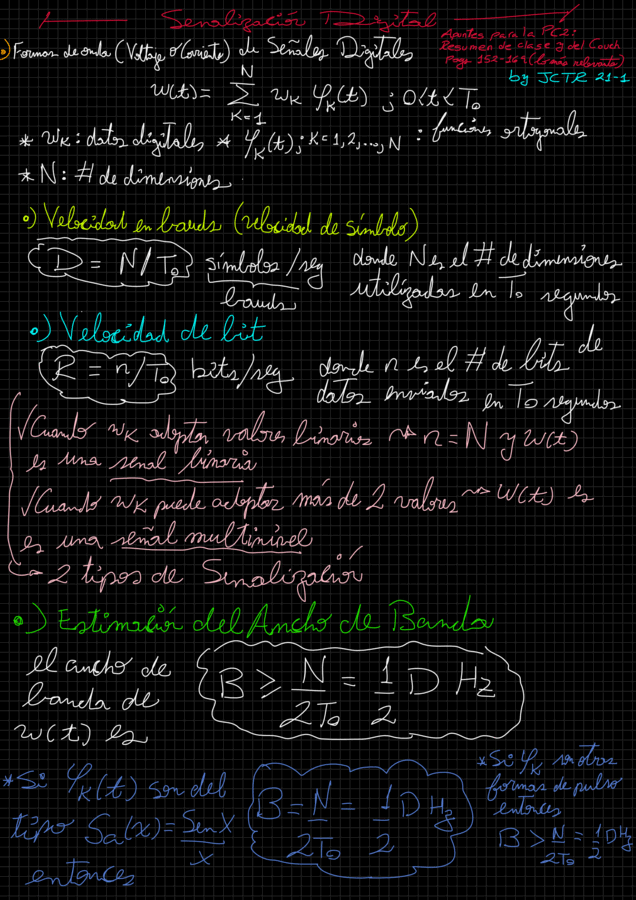 Senalización Digital
Apuntes para la PC2:
Resumen de clase y del Couch
Pags 152-169 (lo más relevante)
by JCTR 21-1
•) Formas de onda (Voltage o Corriente) de Señales Digitales
w(t) = N Σ K=1 wK φK(t) ; 0<t<To
* wK: datos digitales * φK(t); K=1,2,...,N : funciones ortogonales
* N: # de dimensiones
•) Velocidad en bauds (velocidad de símbolo)
D = N/To símbolos/seg donde N es el # de dimensiones
bauds utilizadas en To segundos
•) Velocidad de bit
R = n/To bits/seg donde n es el # de bits de
datos enviados en To segundos
√ Cuando wK adoptan valores binarios ⇝ n = N y w(t)
es una senal binaria
√ Cuando wK puede adoptar más de 2 valores ⇝ w(t) es
es una señal multinivel
→ 2 tipos de Senalización
•) Estimación del Ancho de Banda
el ancho de
banda de
w(t) es
B ≥ N/2To = 1/2 D Hz
* Si φK(t) son del
tipo Sa(x) = Sen x/x
entonces
B = N/2To = 1/2 D Hz
* Si φK son otras
formas de pulso
entonces
B > N/2To = 1/2 D Hz